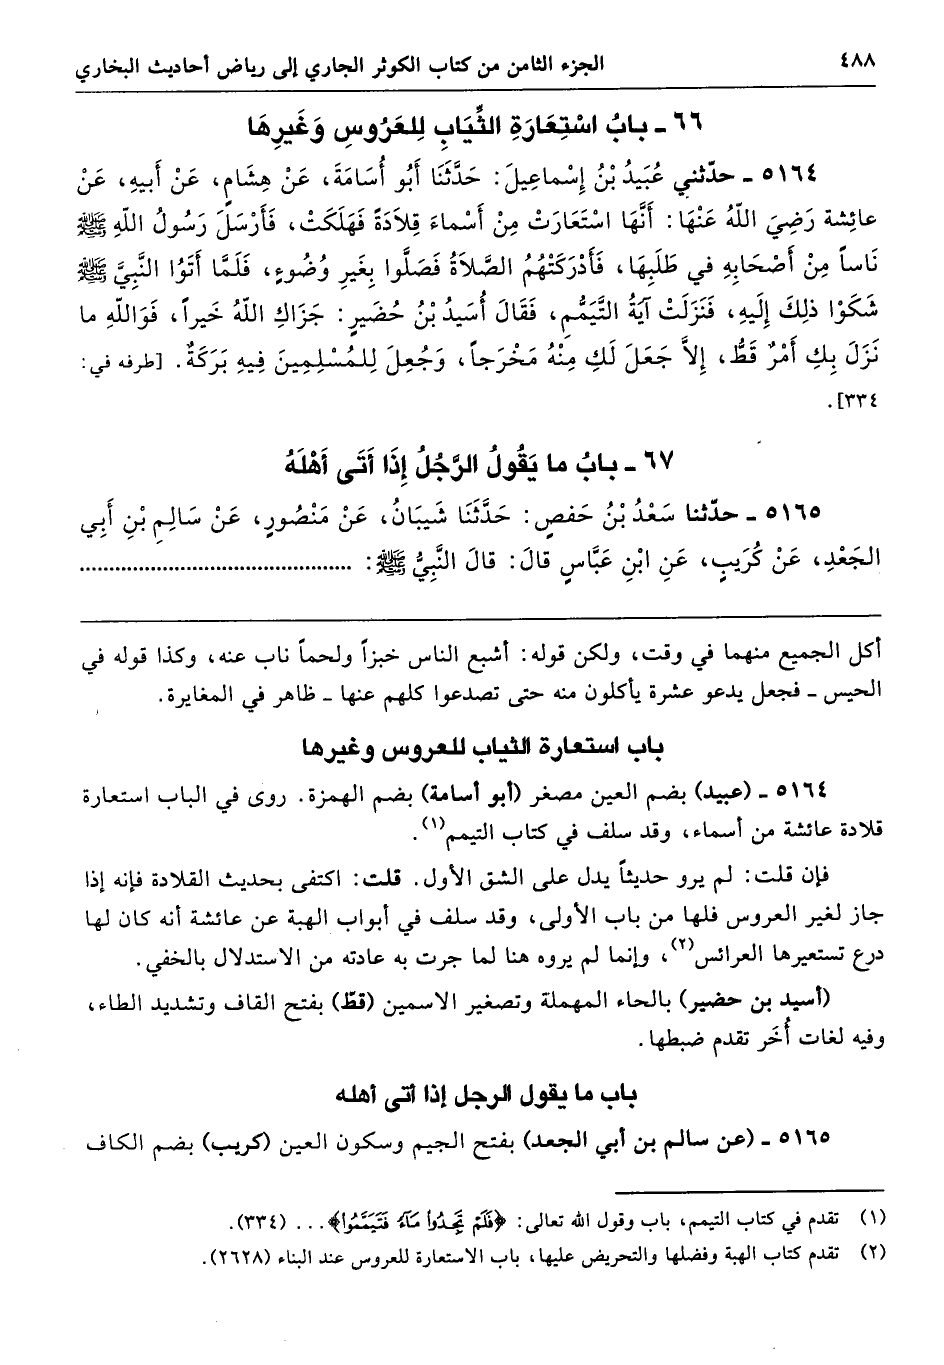 ٤٨٨ الجزء الثامن من كتاب الكوثر الجاري إلى رياض أحاديث البخاري
٦٦ ـ بابُ اسْتِعَارَةِ الثِّيَابِ لِلعَرُوسِ وَغَيرِهَا
٥١٦٤ ـ حدّثني عُبَيدُ بْنُ إِسْماعِيلَ: حَدَّثَنَا أَبُو أُسَامَةَ، عَنْ هِشَامٍ، عَنْ أَبيهِ، عَنْ
عائِشة رَضِيَ اللّهُ عَنْهَا: أَنَّهَا اسْتَعَارَتْ مِنْ أَسْماءَ قِلاَدَةً فَهَلَكَتْ، فَأَرْسَلَ رَسُولُ اللّهِ ﷺ
نَاساً مِنْ أَصْحَابِهِ في طَلَبِهَا، فَأَدْرَكَتْهُمُ الصَّلاَةُ فَصَلَّوا بِغَيرِ وُضُوءٍ، فَلَمَّا أَتَوُا النَّبِيَّ ﷺ
شَكَوْا ذلِكَ إِلَيهِ، فَنَزَلَتْ آيَةُ التَّيَمُّمِ، فَقَالَ أُسَيدُ بْنُ حُضَيرٍ: جَزَاكِ اللّهُ خَيراً، فَوَاللّهِ ما
نَزَلَ بِكِ أَمْرٌ قَطُّ، إِلاَّ جَعَلَ لَكِ مِنْهُ مَخْرَجاً، وَجُعِلَ لِلمُسْلِمِينَ فِيهِ بَرَكَةٌ. [طرفه في:
٣٣٤].
٦٧ ـ بابُ ما يَقُولُ الرَّجُلُ إِذَا أَتَى أَهْلَهُ
٥١٦٥ ـ حدّثنا سَعْدُ بْنُ حَفصٍ: حَدَّثَنَا شَيبَانُ، عَنْ مَنْصُورٍ، عَنْ سَالِمِ بْنِ أَبِي
الجَعْدِ، عَنْ كُرَيبٍ، عَنِ ابْنِ عَبَّاسٍ قالَ: قالَ النَّبِيُّ ﷺ: ..............................................
أكل الجميع منهما في وقت، ولكن قوله: أشبع الناس خبزاً ولحماً ناب عنه، وكذا قوله في
الحيس ـ فجعل يدعو عشرة يأكلون منه حتى تصدعوا كلهم عنها ـ ظاهر في المغايرة.
باب استعارة الثياب للعروس وغيرها
٥١٦٤ ـ (عبيد) بضم العين مصغر (أبو أسامة) بضم الهمزة. روى في الباب استعارة
قلادة عائشة من أسماء، وقد سلف في كتاب التيمم(١).
فإن قلت: لم يرو حديثاً يدل على الشق الأول. قلت: اكتفى بحديث القلادة فإنه إذا
جاز لغير العروس فلها من باب الأولى، وقد سلف في أبواب الهبة عن عائشة أنه كان لها
درع تستعيرها العرائس(٢)، وإنما لم يروه هنا لما جرت به عادته من الاستدلال بالخفي.
(أسيد بن حضير) بالحاء المهملة وتصغير الاسمين (قطّ) بفتح القاف وتشديد الطاء،
وفيه لغات أُخَر تقدم ضبطها.
باب ما يقول الرجل إذا أتى أهله
٥١٦٥ ـ (عن سالم بن أبي الجعد) بفتح الجيم وسكون العين (كريب) بضم الكاف
(١) تقدم في كتاب التيمم، باب وقول الله تعالى: ﴿فَلَمْ تَجِدُواْ مَآءً فَتَيَمَّمُواْ﴾... (٣٣٤).
(٢) تقدم كتاب الهبة وفضلها والتحريض عليها، باب الاستعارة للعروس عند البناء (٢٦٢٨).